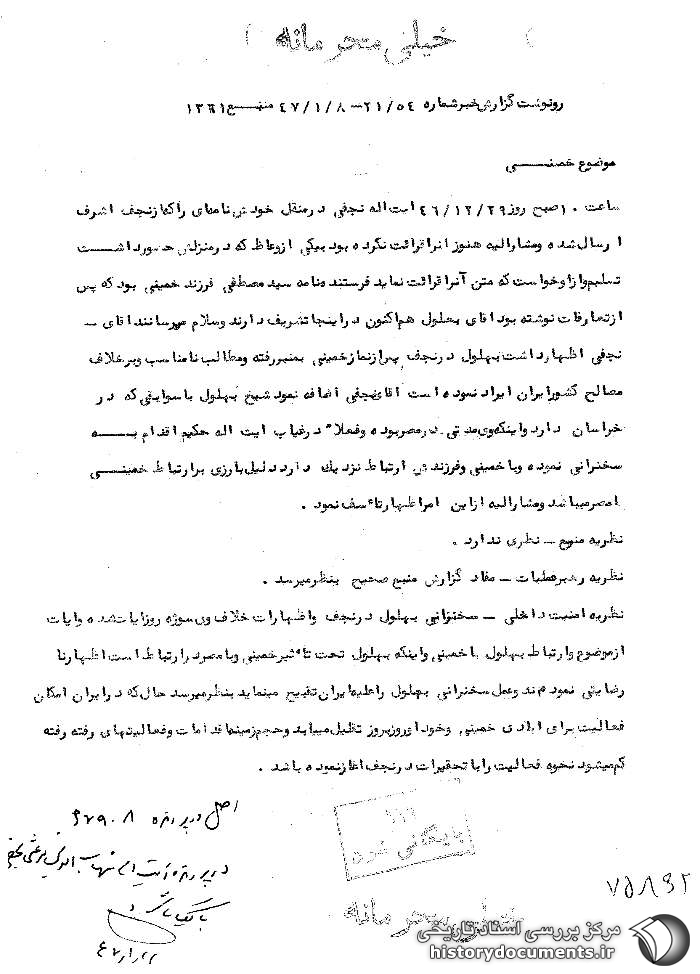 خیلی محرمانه
رونوشت گزارش خبر شماره ۲۱/۵۴ – ۴۷/۱/۸ منبع ۱۳۶۱
موضوع خمینی
ساعت ۱۰ صبح روز ۴۶/۱۲/۲۹ ایت اله نجفی در منزل خودش نامه‌ای را که از نجف اشرف
ارسال شده و مشارالیه هنوز آنرا قرائت نکرده بود بیکی از وعاظ که در منزلش حضور داشت
تسلیم و از او خواست که متن آنرا قرائت نماید فرستنده نامه سید مصطفی فرزند خمینی بود که پس
از تعارفات نوشته بود اقای بهلول هم اکنون در اینجا تشریف دارند و سلام میرسانند اقای –
نجفی اظهار داشت بهلول در نجف پس از نماز خمینی بمنبر رفته و مطالب نامناسب و برخلاف
مصالح کشور ایران ایراد نموده است اقای نجفی اضافه نمود شیخ بهلول با سوابقی که در
خراسان دارد و اینکه وی مدتی در مصر بوده و فعلا در غیاب ایت اله حکیم اقدام به
سخنرانی نموده و با خمینی و فرزندش ارتباط نزدیك دارد دلیل بارزی بر ارتباط خمینی
با مصر میباشد و مشارالیه از این امر اظهار تاسف نمود .
نظریه منبع – نظری ندارد .
نظریه رهبر عملیات – مفاد گزارش منبع صحیح بنظر میرسد .
نظریه امنیت داخلی – سخنرانی بهلول در نجف و اظهارات خلاف وی سوژه روز ایات شده و ایات
از موضوع و ارتباط بهلول با خمینی و اینکه بهلول تحت تاثیر خمینی و با مصر در ارتباط است اظهار نا
رضایتی نموده‌اند و عمل سخنرانی بهلول را علیه ایران تقبیح مینماید بنظر میرسد حال که در ایران امکان
فعالیت برای ایادی خمینی و خود او روز بروز تقلیل میابد و حجم زمینه اقدامات و فعالیتهای رفته رفته
کم میشود نحوه فعالیت را با تحقیرات در نجف اغاز نموده باشد .
اصل در پرونده ۶۷۹۰۸
در پرونده آیت اله شهاب الدین مرعشی نجفی
بایگانی شود
بایگانی شود
۷۵۸۹۲
خیلی محرمانه
مرکز بررسی اسناد تاریخی
historydocuments.ir